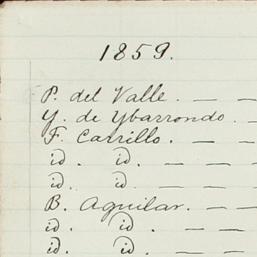 1859.
P. del Valle. — —
Y. de Ybarrondo. —
F. Carrillo. — — —
id. id. — — — —
id. id — — — —
B. Aguilar. — — —
id. id. — — — —
id. id. — — — —